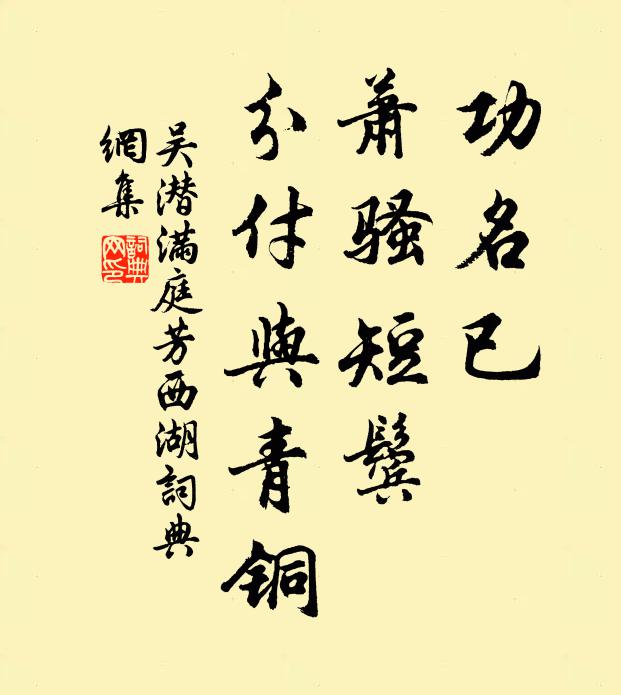 功名已
萧骚短鬓
分付與青铜
吴潜满庭芳西湖詞典
網集
詞典
网印